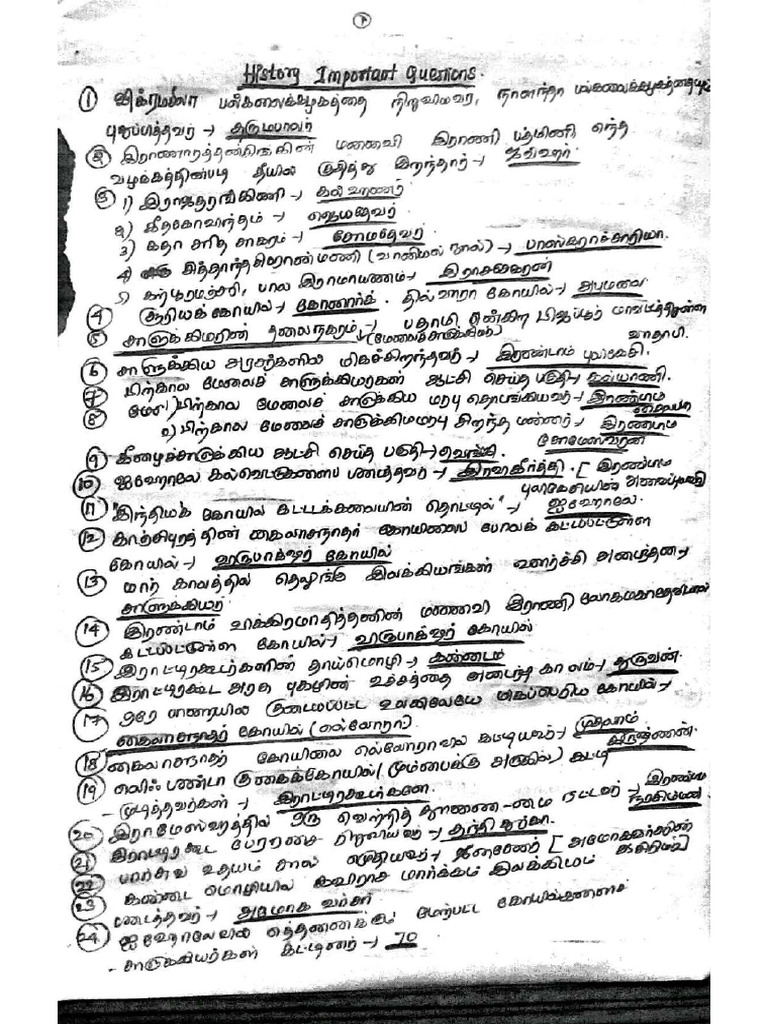 1
History Important Questions.
① விக்ரமசீலா பல்கலைக்கழகத்தை நிறுவியவர், நாளந்தா பல்கலைக்கழகத்தையும்
புதுப்பித்தவர் → தருமபாலர்
② இராணாரத்தன்சிங்கின் மனைவி இராணி பத்மினி எந்த
வழக்கத்தின்படி தீயில் குதித்து இறந்தார் → ஜவ்ஹர்
③ 1) இராஜதரங்கிணி → கல்ஹாணர்
2) கீதகோவிந்தம் → ஜெயதேவர்
3) கதா சரித சாகரம் → சோமதேவர்
4) சித்தாந்த சிரோன்மணி (வானியல் நூல்) → பாஸ்கராச்சாரியா.
5) கற்பூரமஞ்சரி, பால இராமாயணம் → இராசசேகரன்
④ சூரியக் கோயில் → கோனார்க். தில்வாரா கோயில் → அபுமலை
⑤ சாளுக்கியரின் தலைநகரம் → பதாமி என்கிற பிஜப்பூர் மாவட்டத்திலுள்ள
(மேலைச்சாளுக்கியர்) வாதாபி.
⑥ சாளுக்கிய அரசர்களில் மிகச்சிறந்தவர் → இரண்டாம் புலிகேசி.
⑦ பிற்கால மேலைச் சாளுக்கியர்கள் ஆட்சி செய்த பகுதி → கல்யாணி.
⑧ 1) பிற்கால மேலைச் சாளுக்கிய மரபு தொடங்கியவர் → இரண்டாம்
தைலபா
2) பிற்கால மேலைச் சாளுக்கியமரபு சிறந்த மன்னர் → இரண்டாம்
சோமேஸ்வரன்
⑨ கீழைச்சாளுக்கிய ஆட்சி செய்த பகுதி → வெங்கி.
⑩ ஐஹோலே கல்வெட்டுகளைப் படைத்தவர் → இரவிகீர்த்தி. [இரண்டாம்
புலிகேசியின் அவைப்புலவர்]
⑪ "இந்தியக் கோயில் கட்டடக்கலையின் தொட்டில்" → ஐஹோலே.
⑫ காஞ்சிபுரத்தின் கைலாசநாதர் கோயிலைப் போலக் கட்டப்பட்டுள்ள
கோயில் → விருபாக்ஷர் கோயில்
⑬ யார் காலத்தில் தெலுங்கு இலக்கியங்கள் வளர்ச்சி அடைந்தன →
சாளுக்கியர்
⑭ இரண்டாம் விக்கிரமாதித்தனின் மனைவி இராணி லோகமகாதேவியால்
கட்டப்பட்டுள்ள கோயில் → விருபாக்ஷர் கோயில்
⑮ இராட்டிரகூடர்களின் தாய்மொழி → கன்னடம்
⑯ இராட்டிரகூட அரசு புகழின் உச்சத்தை அடைந்த காலம் → துருவன்.
⑰ ஒரே பாறையில் குடையப்பட்ட உலகிலேயே மிகப்பெரிய கோயில் →
கைலாசநாதர் கோயில் (எல்லோரா).
⑱ கைலாசநாதர் கோயிலை எல்லோராவில் கட்டியவர் → முதலாம்
கிருஷ்ணன்.
⑲ எலிஃபண்டா குகைக்கோயில் (மும்பைக்கு அருகில்) கட்டி
முடித்தவர்கள் → இராட்டிரகூடர்களே.
⑳ இராமேஸ்வரத்தில் ஒரு வெற்றித் தூணை நட்டவர் → இரண்டாம்
㉑ இராட்டிரகூட பேரரசை நிறுவியவர் → தந்தி துர்கா.
㉒ பார்சுவ உதயம் நூல் எழுதியவர் → ஜீனசேனர் [அமோகவர்சரின்
㉓ கன்னட மொழியில் கவிராச மார்க்கம் இலக்கியம்
படைத்தவர் → அமோக வர்சர்
㉔ ஐஹோலேவில் எத்தனைக்கும் மேற்பட்ட கோயில்களைச்
சாளுக்கியர்கள் கட்டினர் → 70